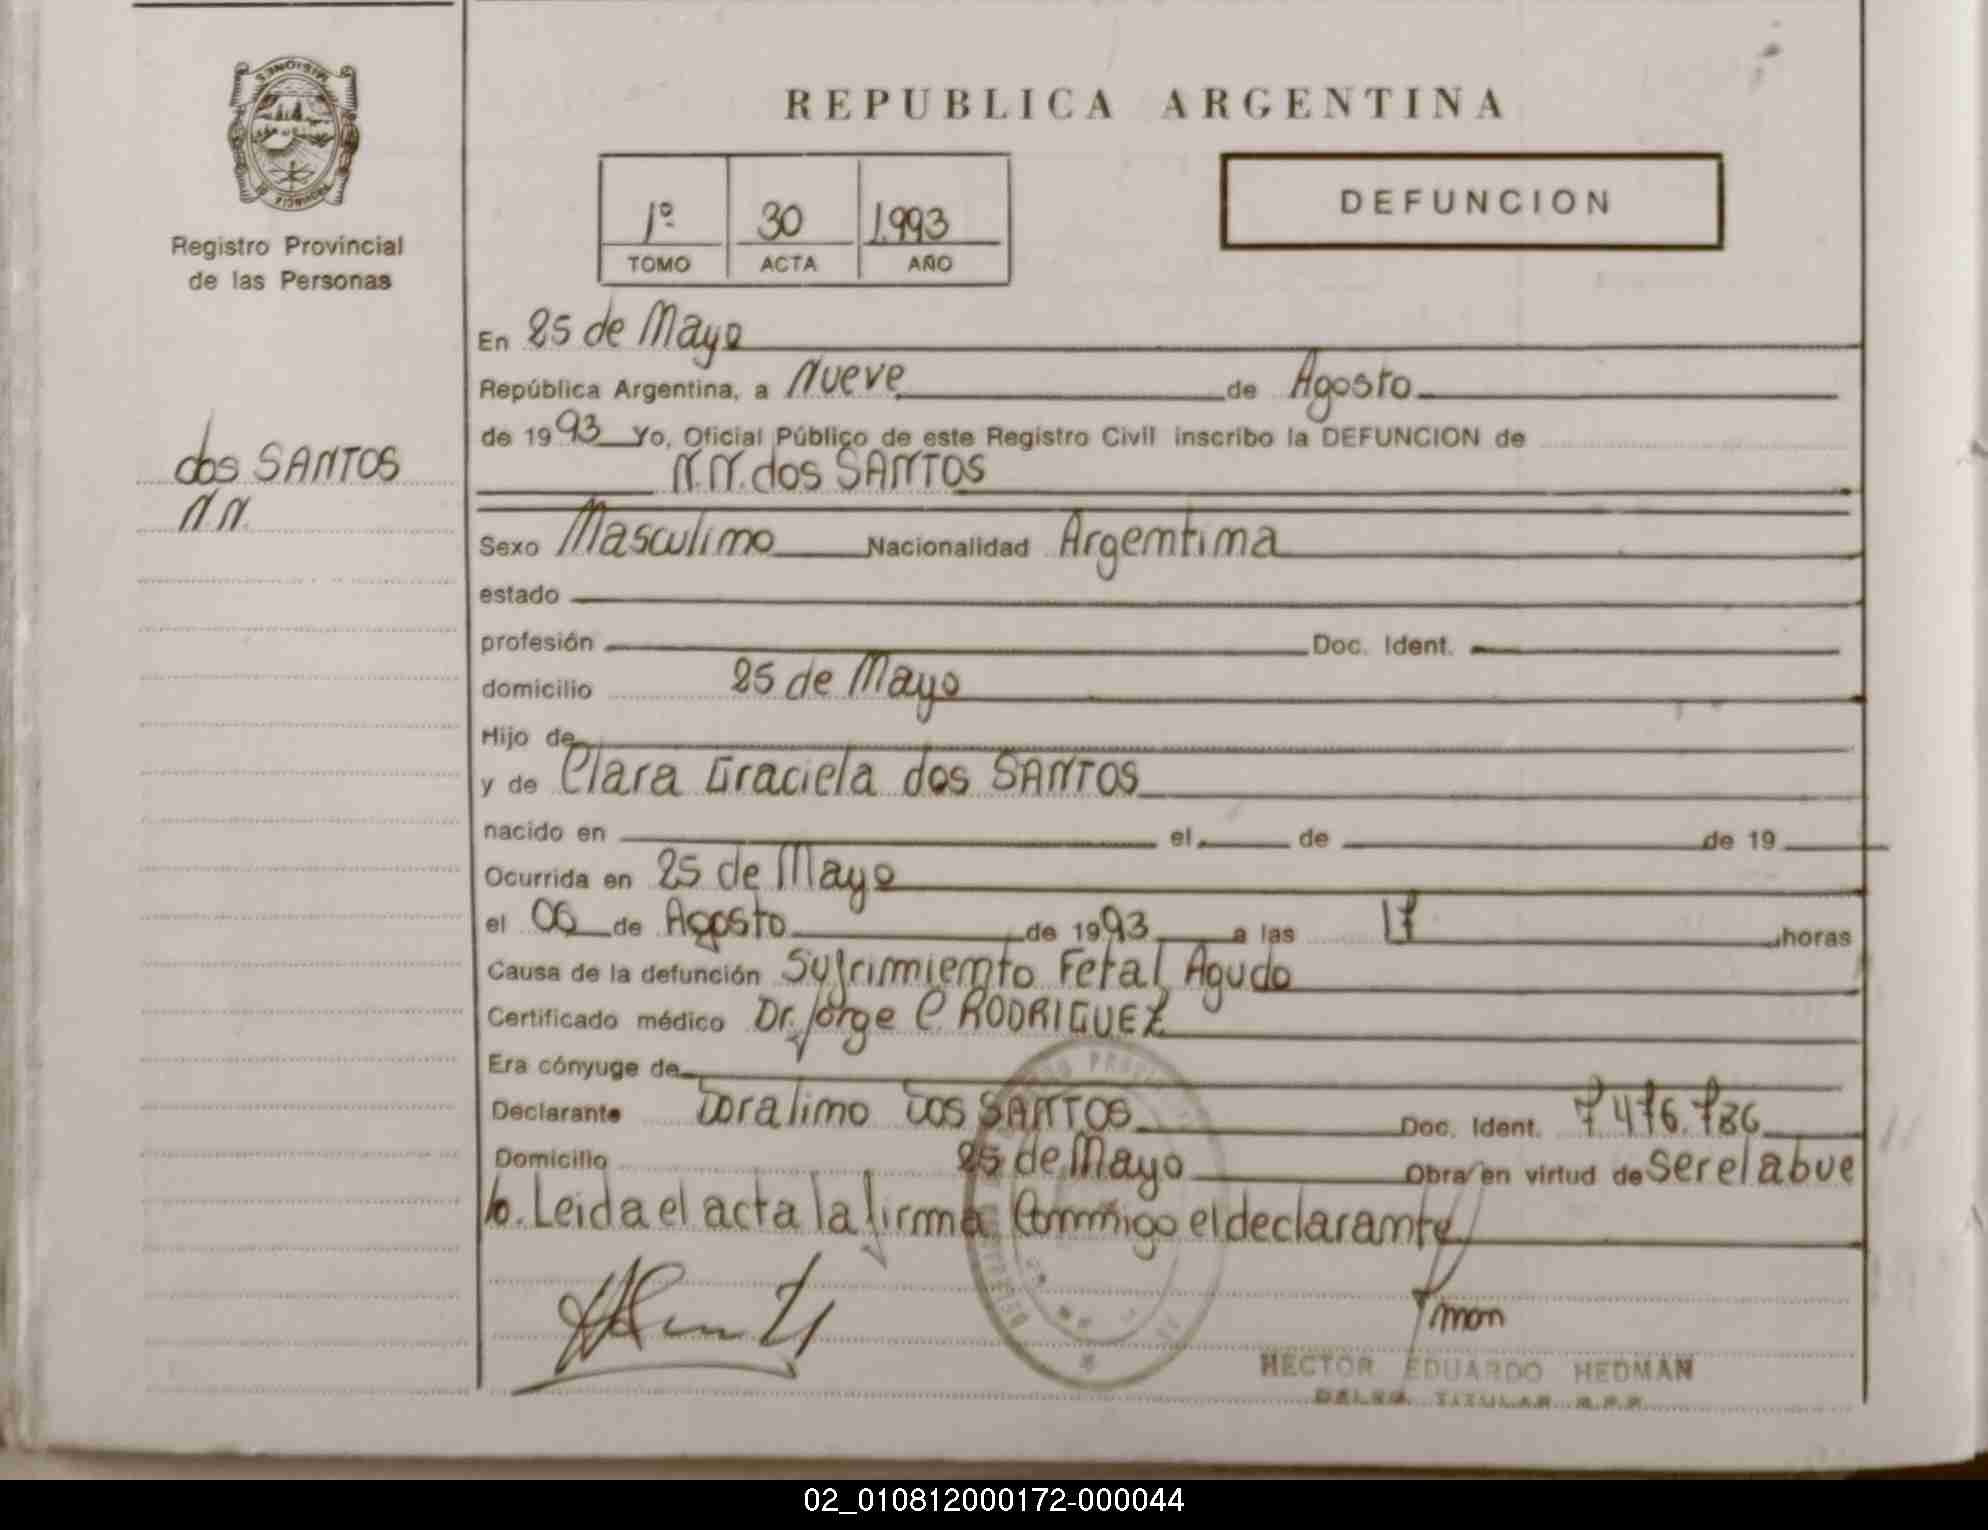 MISIONES
PROVINCIA
Registro Provincial
de las Personas
dos SANTOS
N.N.
REPUBLICA ARGENTINA
1º 30 1.993
TOMO ACTA AÑO
DEFUNCION
En 25 de Mayo
República Argentina, a Nueve de Agosto
de 1993 Yo, Oficial Público de este Registro Civil inscribo la DEFUNCION de
N.N. dos SANTOS
Sexo Masculino Nacionalidad Argentina
estado
profesión Doc. Ident.
domicilio 25 de Mayo
Hijo de
y de Clara Graciela dos SANTOS
nacido en el de de 19
Ocurrida en 25 de Mayo
el 06 de Agosto de 1993 a las 17 horas
Causa de la defunción Sufrimiento Fetal Agudo
Certificado médico Dr. Jorge C. RODRIGUEZ
Era cónyuge de
Declarante Doralino Dos SANTOS Doc. Ident. 7 476.786
Domicilio 25 de Mayo Obra en virtud de ser el abue
lo. Leida el acta la firma Conmigo el declarante
HECTOR EDUARDO HEDMAN
TITULAR R.P.P.
02_010812000172-000044